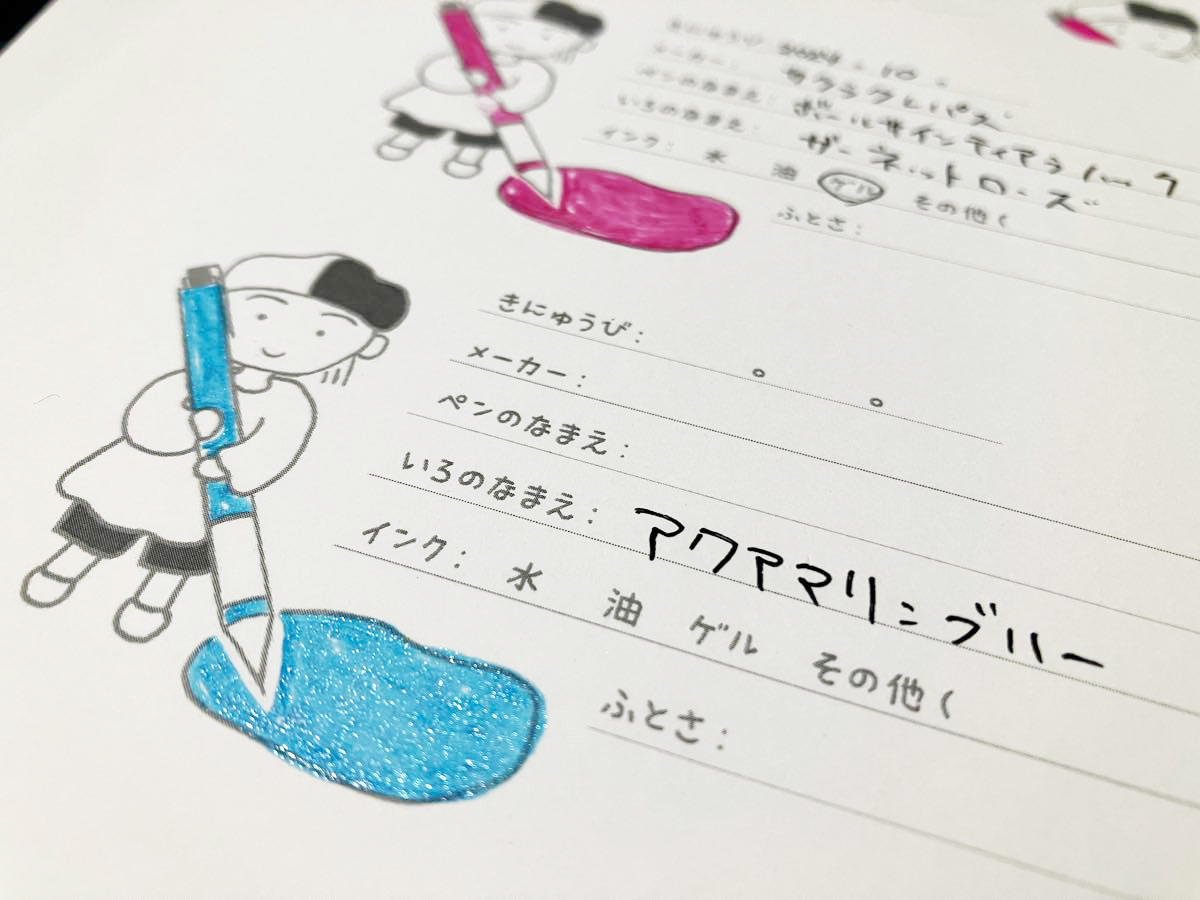 きにゅうび: 2024. 10.
メーカー: サクラクレパス
ペンのなまえ: ボールサインティアラ ハーク
いろのなまえ: ガーネットローズ
インク: 水 油 ゲル その他(
ふとさ:
きにゅうび: 。 。
メーカー:
ペンのなまえ:
いろのなまえ: アクアマリンブルー
インク: 水 油 ゲル その他(
ふとさ: